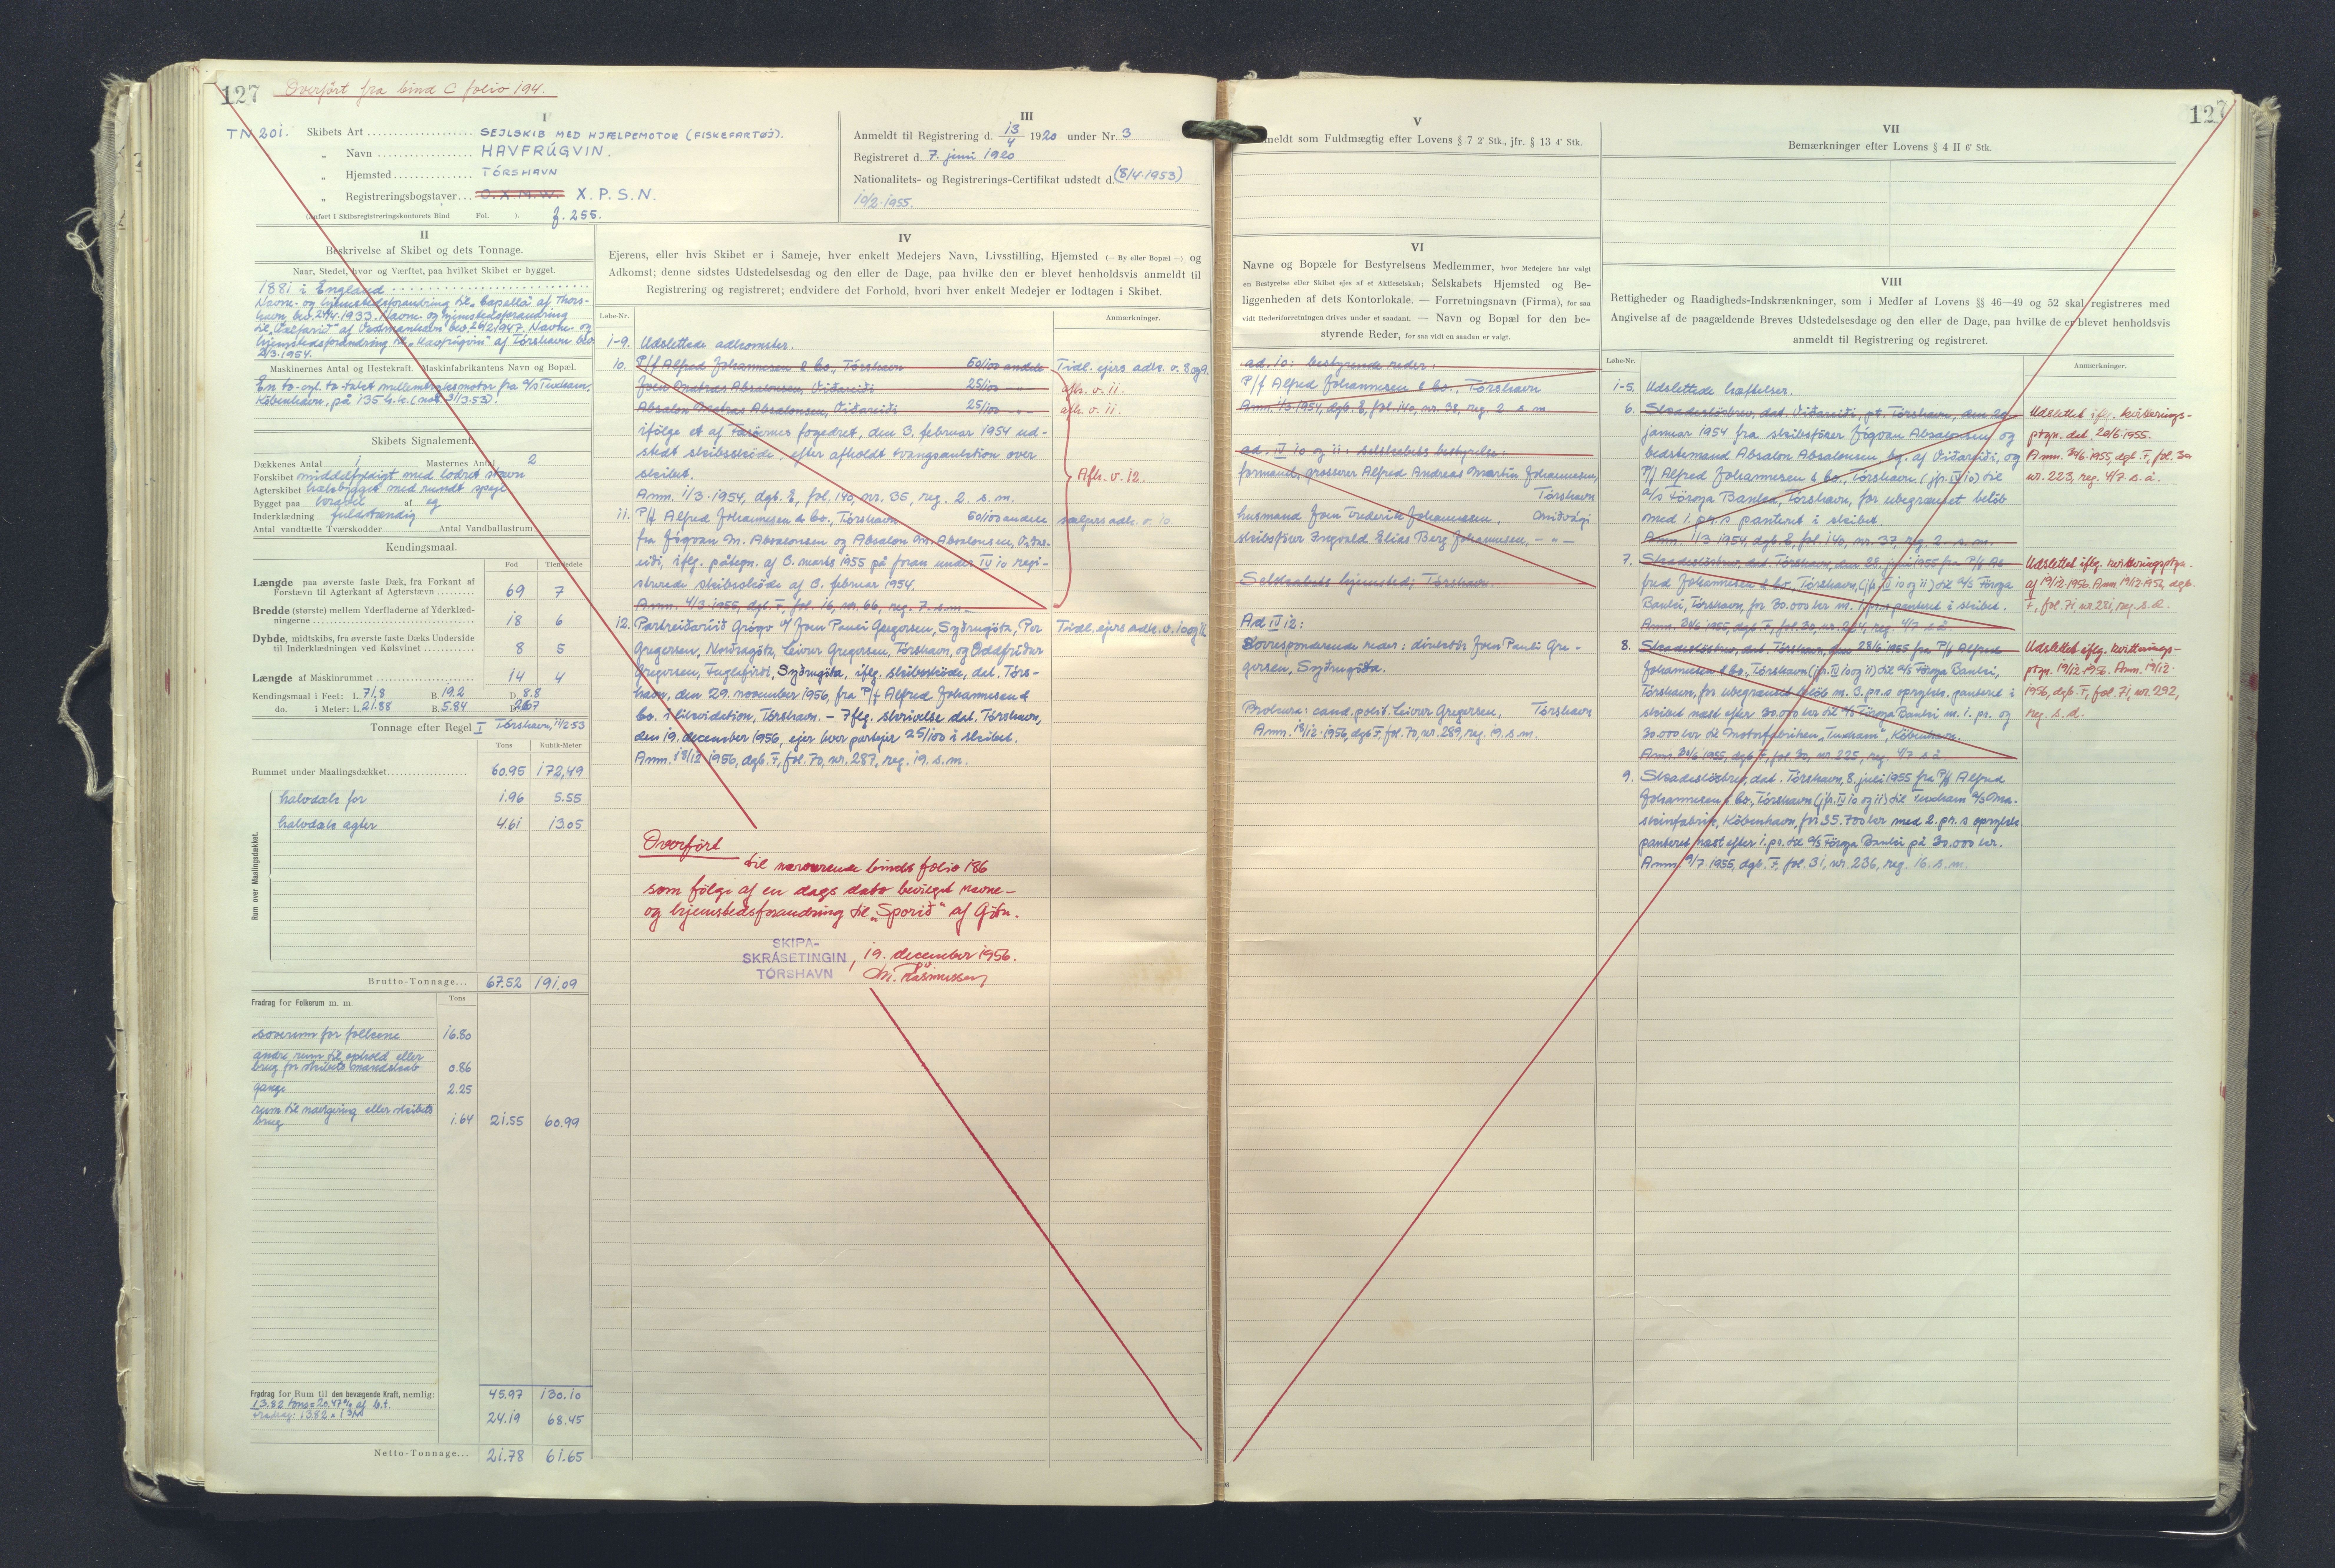 127
Overført fra bind C folio 194.
TN 201.
I
Skibets Art SEJLSKIB MED HJÆLPEMOTOR (FISKEFARTØJ).
„ Navn HAVFRÚGVIN.
„ Hjemsted TÓRSHAVN
„ Registreringsbogstaver X.P.S.N.
(Anført i Skibsregistreringskontorets Bind Fol. ). f. 255.
III
Anmeldt til Registrering d. 13/4 1920 under Nr. 3
Registreret d. 7. juni 1920
Nationalitets- og Registrerings-Certifikat udstedt d. (8/4.1953)
10/2.1955.
II
Beskrivelse af Skibet og dets Tonnage.
Naar, Stedet, hvor og Værftet, paa hvilket Skibet er bygget.
1881 i England
Navne- og hjemstedsforandring til „Capella“ af Thors-
havn bev. 24/4.1933. Navne- og hjemstedsforandring
af Vestmanhavn bev. 26/2 1947. Navne- og
hjemstedsforandring til „Havfrúgvin“ af Tórshavn bev.
2/3.1954.
Maskinernes Antal og Hestekraft. Maskinfabrikantens Navn og Bopæl.
En to-cyl. to-takts mellemtryksmotor fra a/s Tuxham,
København, på 135 h.k. (mod. 31/3.53).
Skibets Signalement.
Dækkenes Antal 1 Masternes Antal 2
Forskibet middelfyldigt med lodret stavn
Agterskibet halvbygget med rundt spejl
Bygget paa kravel af eg
Inderklædning fuldstændig
Antal vandtætte Tværskodder Antal Vandballastrum
Kendingsmaal.
Fod Tiendedele
Længde paa øverste faste Dæk, fra Forkant af
Forstævn til Agterkant af Agterstævn 69 7
Bredde (største) mellem Yderfladerne af Yderklæd-
ningerne 18 6
Dybde, midtskibs, fra øverste faste Dæks Underside
til Inderklædningen ved Kølsvinet 8 5
Længde af Maskinrummet 14 4
Kendingsmaal i Feet: L. 71,8 B. 19.2 D. 8.8
do. i Meter: L. 21.88 B. 5.84 D. 2.67
Tonnage efter Regel I Tórshavn, 11/2 53
Tons Kubik-Meter
Rummet under Maalingsdækket 60.95 172,49
Rum over Maalingsdækket.
halvdæk for 1.96 5.55
halvdæk agter 4.61 13.05
Brutto-Tonnage... 67.52 191.09
Fradrag for Folkerum m. m. Tons
soverum for folkene 16.80
andre rum til ophold eller
brug for skibets mandskab 0.86
gange 2.25
rum til navigering eller skibets
brug 1.64 21.55 60.99
Fradrag for Rum til den bevægende Kraft, nemlig: 45.97 130.10
13.82 tons = 20.47% af b.t.
fradrag: 13.82 x 1 3/4 24.19 68.45
Netto-Tonnage... 21.78 61.65
IV
Ejerens, eller hvis Skibet er i Sameje, hver enkelt Medejers Navn, Livsstilling, Hjemsted (— By eller Bopæl —) og
Adkomst; denne sidstes Udstedelsesdag og den eller de Dage, paa hvilke den er blevet henholdsvis anmeldt til
Registrering og registreret; endvidere det Forhold, hvori hver enkelt Medejer er lodtagen i Skibet.
Løbe-Nr. Anmærkninger.
1-9. Udslettede adkomster.
10. P/f Alfred Johannesen & Co., Tórshavn 50/100 andele Tidl. ejers adk. v. 8 og 9.
Absalonsen, Viðareiði 25/100 — „ — afh. v. 11.
Absalon Absalonsen, Viðareiði 25/100 — „ — afh. v. 11.
ifølge et af Færøernes fogedret, den 3. februar 1954 ud-
stedt skibsskøde, efter afholdt tvangsauktion over
skibet.
Anm. 1/3.1954, dgb. E, fol. 140, nr. 35, reg. 2. s.m.
Afh. v. 12.
11. P/f Alfred Johannesen & Co., Tórshavn 50/100 andele sælgers adk. v. 10.
fra Jógvan M. Absalonsen og Absalon M. Absalonsen, Viðar-
eiði, iflg. påtegn. af 3. marts 1955 på foran under IV 10 regi-
strerede skibsskøde af 3. februar 1954.
Anm. 4/3.1955, dgb. F, fol. 16, nr. 66, reg. 7. s.m.
12. Partreiðaríið Grógv v/ Joen Pauli Gregersen, Syðrugøta, Per Tidl. ejers adk. v. 10 og 11.
Gregersen, Norðragøta, Leivur Gregersen, Tórshavn, og Oddfríður
Gregersen, Fuglafirði, Syðrugøta, iflg. skibsskøde, dat. Tórs-
havn, den 29. november 1956, fra P/f Alfred Johannesen &
Co. i likvidation, Tórshavn. — Iflg. skrivelse dat. Tórshavn,
den 19. december 1956, ejer hver partejer 25/100 i skibet.
Anm. 18/12 1956, dgb. F, fol. 70, nr. 287, reg. 19. s.m.
Overført
til nærværende binds folio 186
som følge af en dags dato bevilget navne-
og hjemstedsforandring til „Sporið“ af Gøtu.
SKIPA-
SKRÁSETINGIN
TÓRSHAVN
, 19. december 1956.
Chr. Rasmussen
127
V
meldt som Fuldmægtig efter Lovens § 7 2' Stk., jfr. § 13 4' Stk.
VI
Navne og Bopæle for Bestyrelsens Medlemmer, hvor Medejere har valgt
en Bestyrelse eller Skibet ejes af et Aktieselskab; Selskabets Hjemsted og Be-
liggenheden af dets Kontorlokale. — Forretningsnavn (Firma), for saa
vidt Rederiforretningen drives under et saadant. — Navn og Bopæl for den be-
styrende Reder, for saa vidt en saadan er valgt.
ad. 10: bestyrende reder:
P/f Alfred Johannesen & Co., Tórshavn
Anm. 1/3 1954, dgb. E, fol. 140, nr. 38, reg. 2 s.m.
ad. IV 10 og 11: selskabets bestyrelse:
formand, grosserer Alfred Andreas Martin Johannesen,
Tórshavn
husmand Joen Frederik Johannesen, Miðvági
skibsfører Ingvald Elias Berg Johannesen, — „ —
Selskabets hjemsted: Tórshavn.
Ad IV 12:
Korresponderende reder: direktør Joen Pauli Gre-
gersen, Syðrugøta.
Prokura: cand. polit. Leivur Gregersen, Tórshavn
Anm. 18/12.1956, dgb. F, fol. 70, nr. 289, reg. 19. s.m.
VII
Bemærkninger efter Lovens § 4 II 6' Stk.
VIII
Rettigheder og Raadigheds-Indskrænkninger, som i Medfør af Lovens §§ 46—49 og 52 skal registreres med
Angivelse af de paagældende Breves Udstedelsesdage og den eller de Dage, paa hvilke de er blevet henholdsvis
anmeldt til Registrering og registreret.
Løbe-Nr. Anmærkning.
1-5. Udslettede hæftelser.
6. Skadesløsbrev, dat. Viðareiði, pt. Tórshavn, den 29. Udslettet iflg. kvitterings-
januar 1954 fra skibsfører Jógvan Absalonsen og ptgn. dat. 20/6.1955.
bedstemand Absalon Absalonsen bg. af Viðareiði, og Anm. 24/6.1955, dgb. F, fol. 30
P/f Alfred Johannesen & Co., Tórshavn. (jfr. IV 10) til nr. 223, reg. 4/7 s.å.
a/s Føroya Banka, Tórshavn, for ubegrænset beløb
med 1. pr.s panteret i skibet.
Anm. 1/3 1954, dgb. E, fol. 140, nr. 37, reg. 2. s.m.
7. Skadesløsbrev, dat. Tórshavn, den 28. juni 1955 fra P/f Al- Udslettet iflg. kvitteringsptgn.
fred Johannesen & Co., Tórshavn, (jfr. IV 10 og 11) til a/s Føroya af 19/12.1956. Anm. 19/12.1956, dgb.
Banki, Tórshavn, for 30.000 kr m. 1. pr.s panteret i skibet. F, fol. 71, nr. 281, reg. s.d.
Anm. 24/6 1955, dgb. F, fol. 30, nr. 224, reg. 4/7 s.å.
8. Skadesløsbrev, dat. Tórshavn, den 28/6 1955 fra P/f Alfred Udslettet iflg. kvitterings-
Johannesen & Co., Tórshavn (jfr. IV 10 og 11) til a/s Føroya Banki, ptgn. 19/12.1956. Anm. 19/12.
Tórshavn, for ubegrænset beløb m. 3. pr.s oprykk. panteret i 1956, dgb. F, fol. 71, nr. 292,
skibet næst efter 30.000 kr til a/s Føroya Banki m. 1. pr. og reg. s.d.
30.000 kr til Motorfabriken „Tuxham“, København.
Anm. 24/6 1955, dgb. F, fol. 30, nr. 225, reg. 4/7 s.å.
9. Skadesløsbrev, dat. Tórshavn, 8. juli 1955 fra P/f Alfred
Johannesen & Co., Tórshavn (jfr. IV 10 og 11) til Tuxham a/s Ma-
skinfabrik, København, for 35.700 kr med 2. pr.s oprykk.
panteret næst efter 1. pr. til a/s Føroya Banki på 30.000 kr.
Anm. 9/7.1955, dgb. F, fol. 31, nr. 236, reg. 16. s.m.